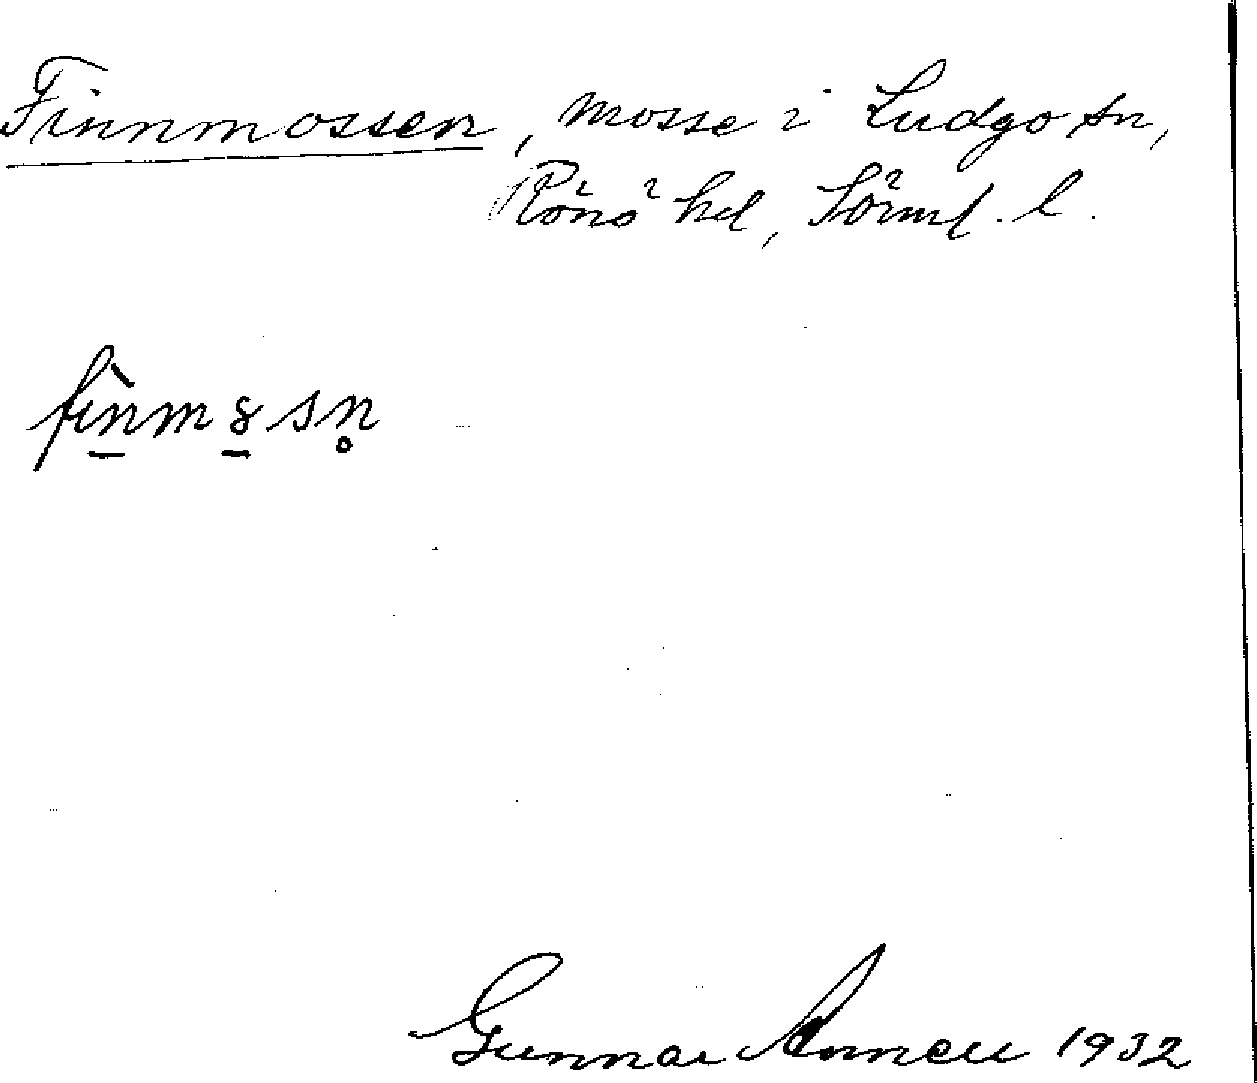 Finnmossen, mosse i Ludgo sn,
Rönö hd, Södml. l.
fìnmȣsn̥
Gunnar 1932